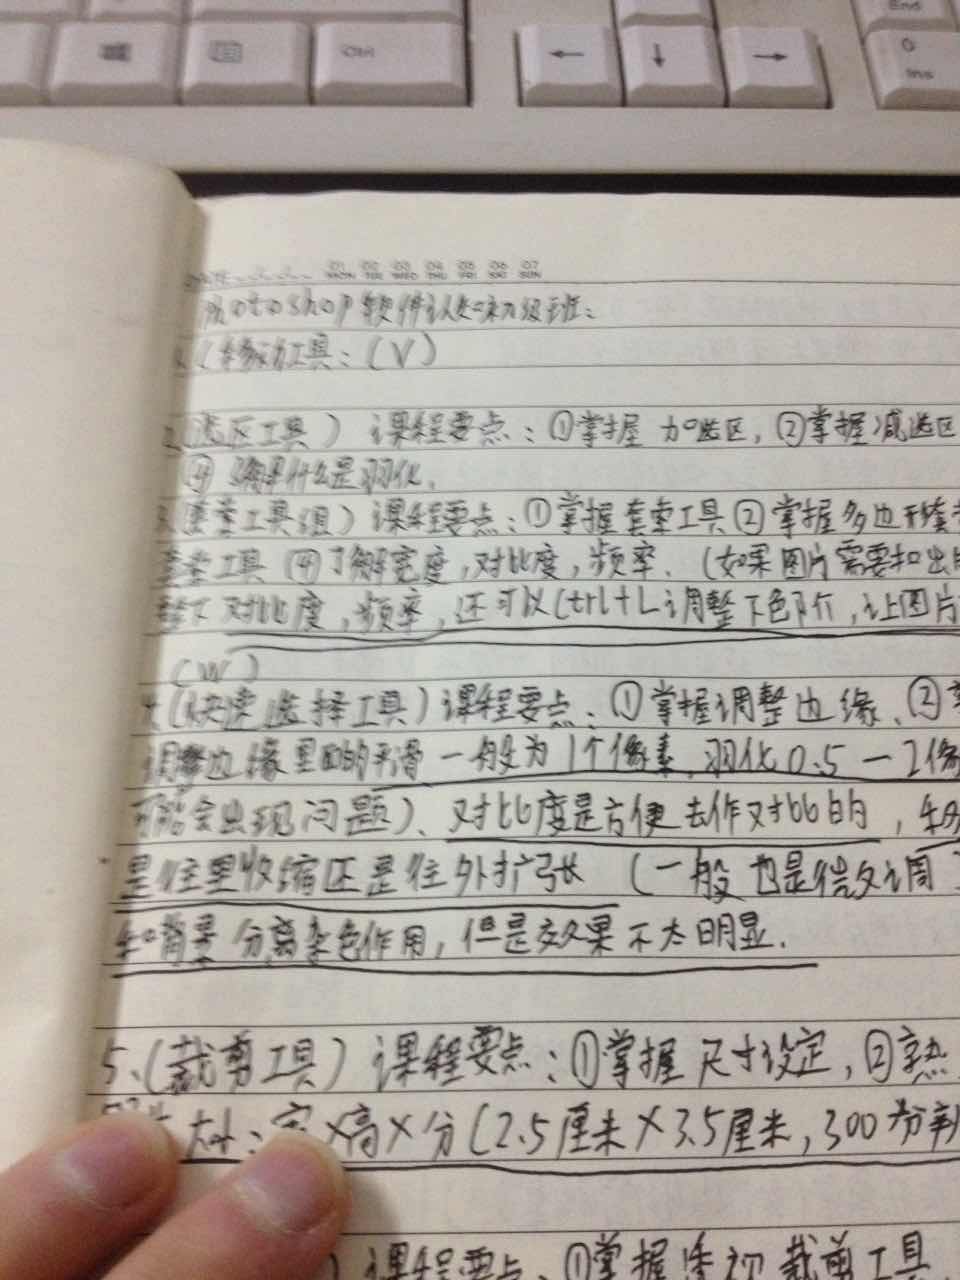 End
Ctrl
← ↓ →
0
Ins
01 02 03 04 05 06 07
MON TUE WED THU FRI SAT SUN
Photoshop软件认处初级班：
(移动工具：(V)
2.(选区工具） 课程要点：①掌握 加选区，②掌握减选区
④ 了解什么是羽化．
3.(套索工具组）课程要点：①掌握套索工具②掌握多边形套
套索工具 ④了解宽度，对比度，频率．(如果图片需要扣出的
整下对比度，频率，还可以Ctrl+L调整下色阶，让图片
(W)
4.(快速选择工具）课程要点：①掌握调整边缘、②
调整边缘里面的平滑一般为1个像素，羽化0.5一1像
可能会出现问题)、对比度是方便去作对比的，
是往里收缩还是往外扩张 (一般也是微微调
和背景分离杂色作用，但是效果不太明显．
5、(裁剪工具）课程要点：①掌握尺寸设定，②熟
宽×高×分(2.5厘米×3.5厘米，300分辨
）课程要点：①掌握透视裁剪工具